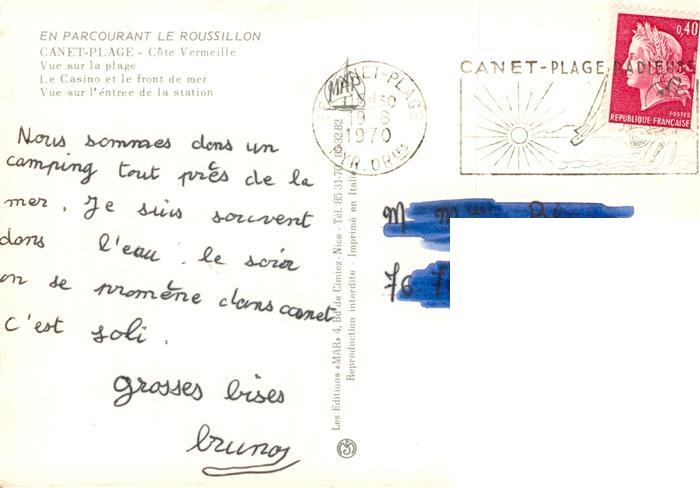 EN PARCOURANT LE ROUSSILLON
CANET-PLAGE - Côte Vermeille
Vue sur la plage
Le Casino et le front de mer
Vue sur l'éntree de la station
Nous sommes dans un
camping tout près de la
mer. Je suis souvent
dans l'eau. le soir
on se promène dans canet
c'est joli.
grosses bises
bruno
Les Editions «MAR» 4, Bd de Cimiez-Nice - Tél.
Reproduction interdite - Imprimé en Italie
MAR
CANET-PLAGE
1970
PYR. ORles
CANET-PLAGE RADIEUSE
0,40
POSTES
REPUBLIQUE FRANÇAISE
M
76